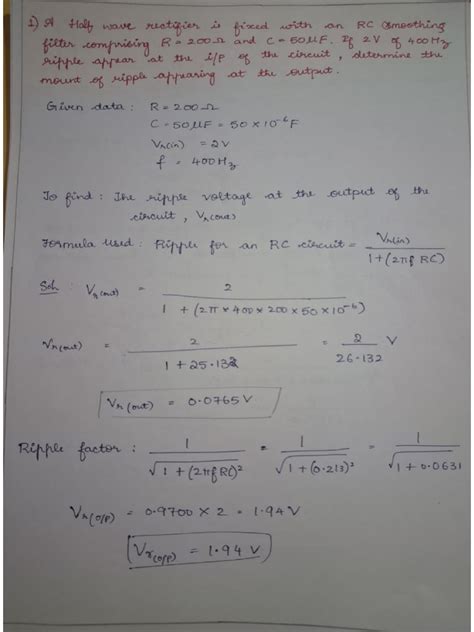 1) A Half wave rectifier is fixed with an RC smoothing
filter comprising R = 200Ω and C = 50μF. If 2V of 400Hz
ripple appear at the i/p of the circuit, determine the
mount of ripple appearing at the output.
Given data : R = 200Ω
C = 50μF = 50 × 10⁻⁶F
Vr(in) = 2V
f = 400Hz
To find : The ripple voltage at the output of the
circuit, Vr(out)
Formula used : Ripple for an RC circuit = Vr(in) / 1 + (2πf RC)
Soln : Vr(out) = 2 / 1 + (2π × 400 × 200 × 50 × 10⁻⁶)
Vr(out) = 2 / 1 + 25.132 = 2 / 26.132 V
Vr(out) = 0.0765V
Ripple factor : 1 / √1 + (2πf RC)² = 1 / √1 + (0.213)² = 1 / √1 + 0.0631
Vr(o/p) = 0.9700 × 2 = 1.94V
Vr(o/p) = 1.94 V